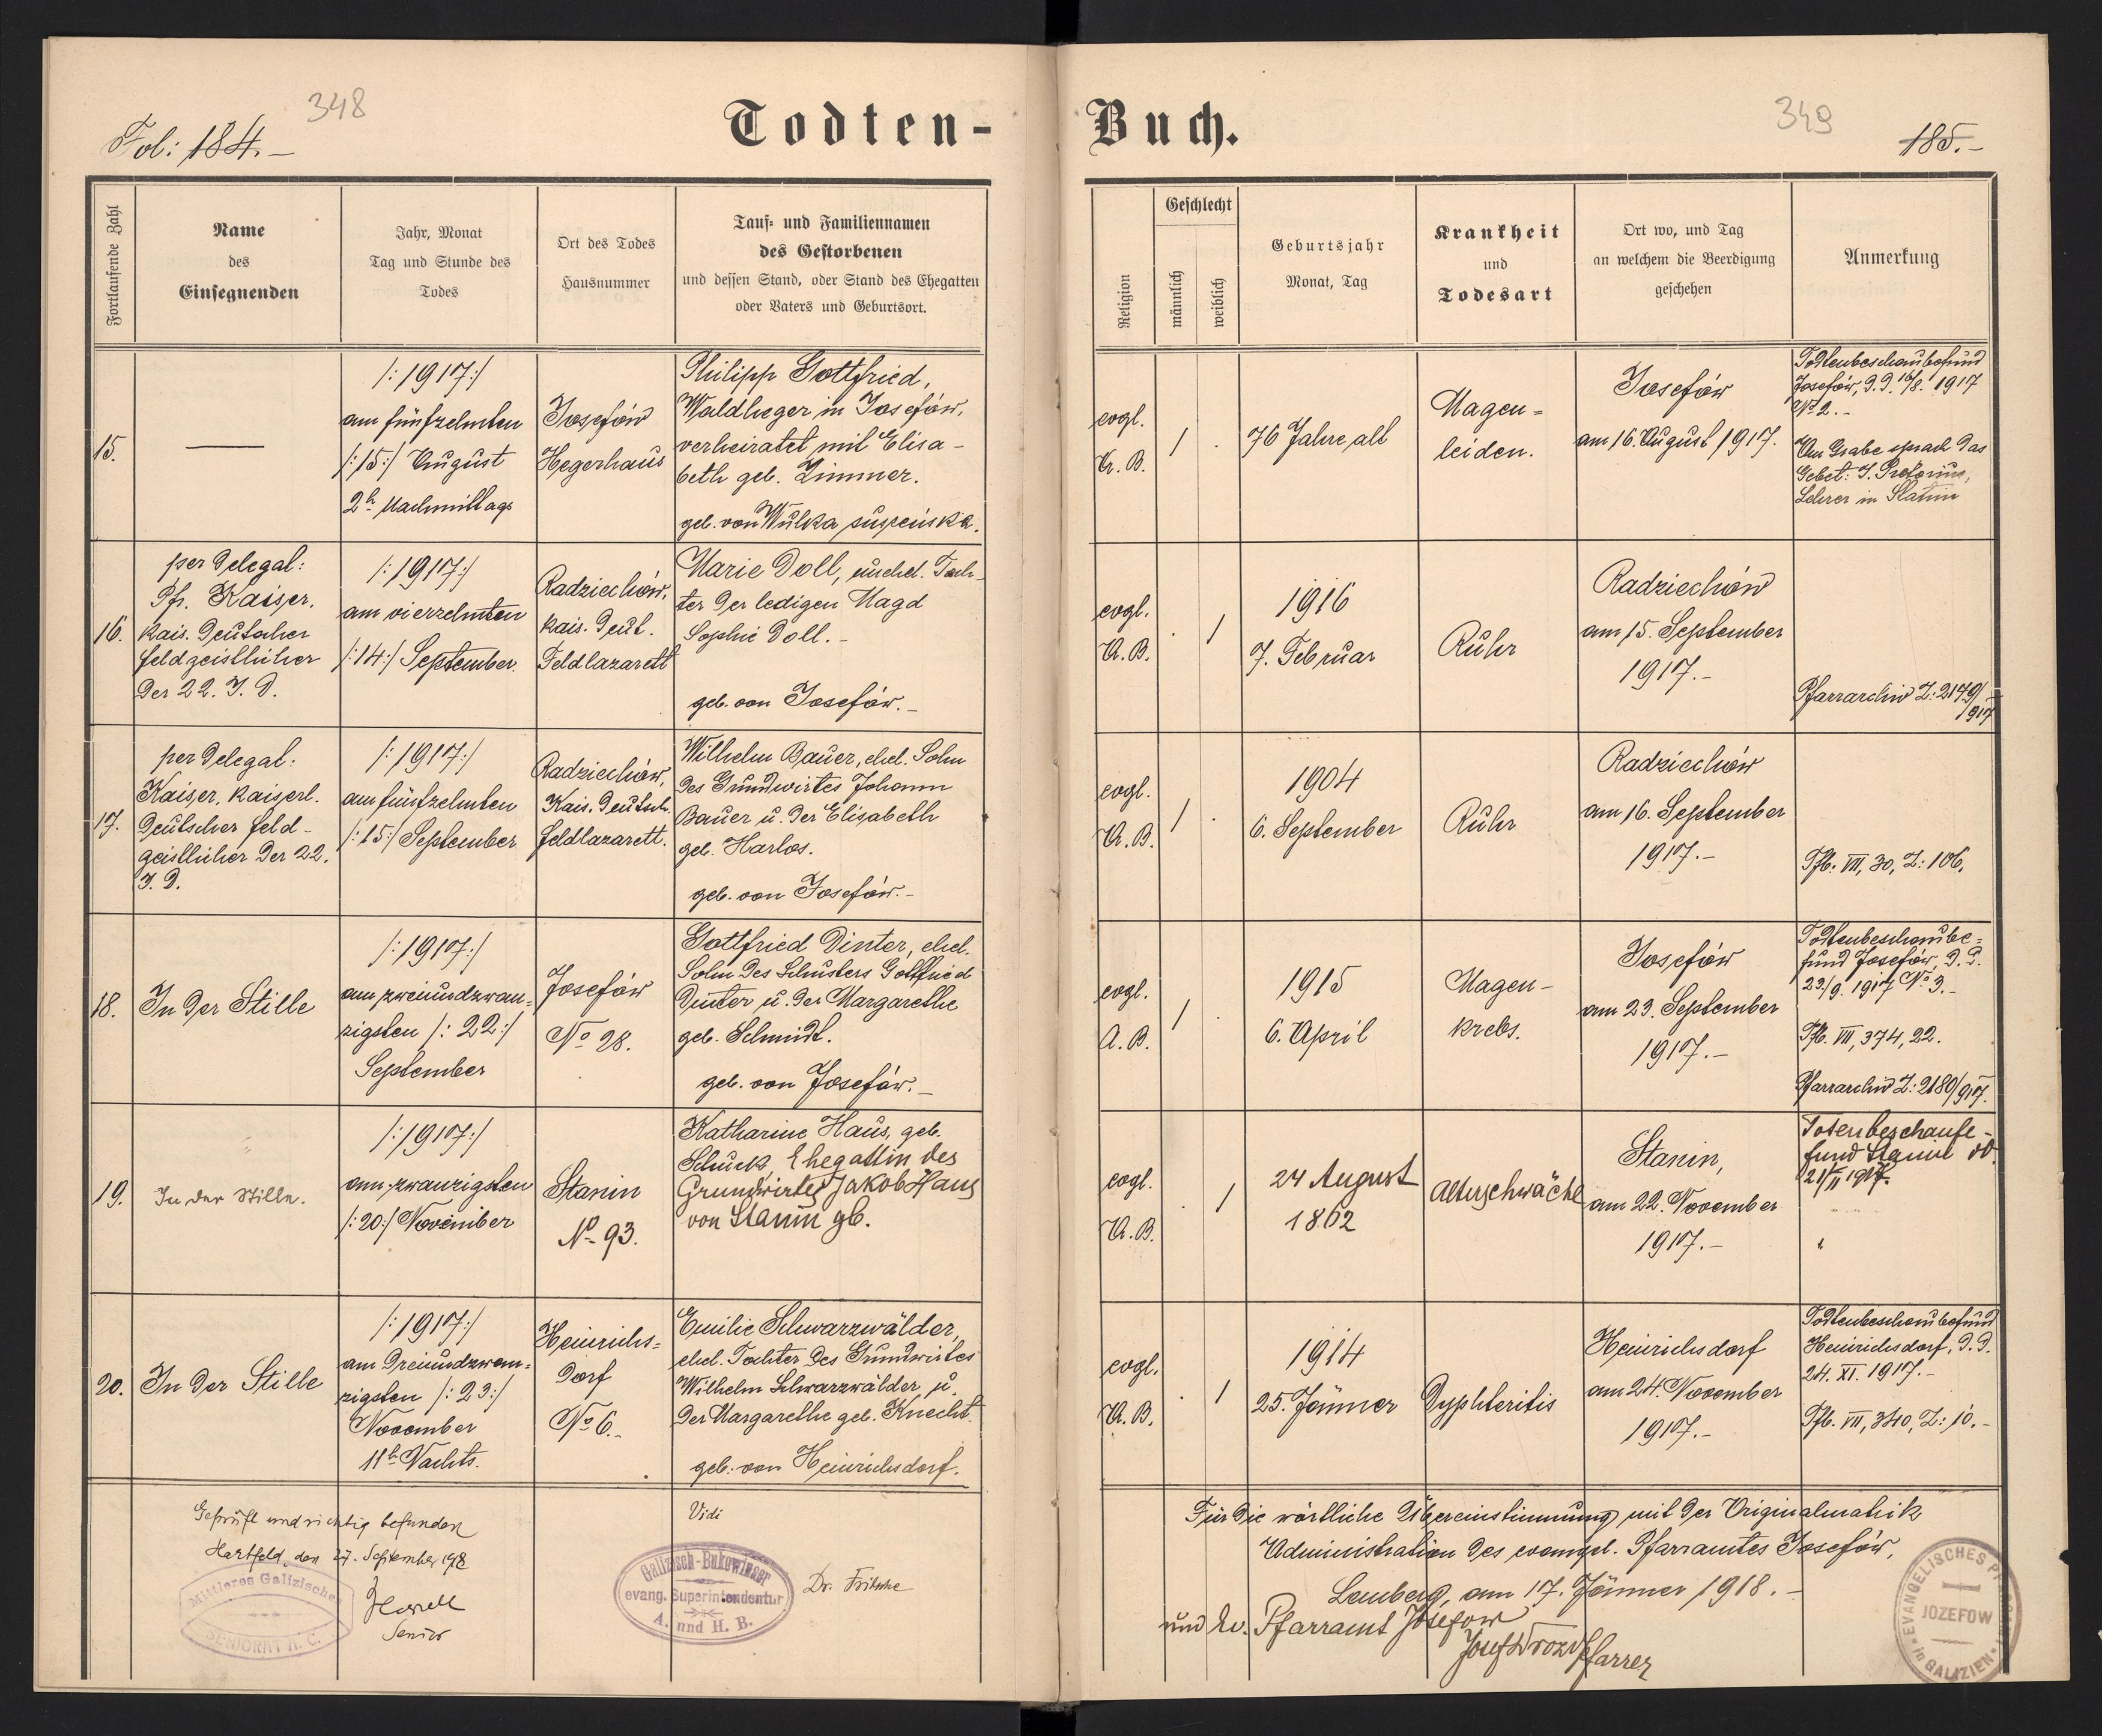 348
Fol: 184.-
Todten-
Fortlaufende Zahl
Name
des
Einsegnenden
Jahr, Monat
Tag und Stunde des
Todes
Ort des Todes
Hausnummer
Tauf- und Familiennamen
des Gestorbenen
und dessen Stand, oder Stand des Ehegatten
oder Vaters und Geburtsort.
15.
—
/:1917:/
am fünfzehnten
/:15:/ August
2h Nachmittags
Josefów
Hegerhaus
Philipp Gottfried,
Waldheger in Josefów,
verheiratet mit Elisa-
beth geb. Zimmer.
geb. von Wulka suszeńska.
16.
per Delegat:
Pfr. Kaiser,
kais. Deutscher
Feldgeistlicher
Der 22. J. D.
/:1917:/
am vierzehnten
/:14:/ September.
Radziechów,
kais. Deut.
Feldlazarett
Marie Doll, unehel. Toch-
ter der ledigen Magd
Sophie Doll.-
geb. von Josefów.-
17.
per Delegat:
Kaiser, kaiserl.
Deutscher Feld-
geistlicher Der 22.
J. D.
/:1917:/
am fünfzehnten
/:15:/ September
Radziechów,
Kais. Deutsch.
Feldlazarett.
Wilhelm Bauer, ehel. Sohn
des Grundwirtes Johann
Bauer u. der Elisabeth
geb. Harlos.
geb. von Josefów.-
18.
In der Stille
/:1917:/
am zweiundzwan-
zigsten /:22:/
September
Josefów
No 28.
Gottfried Dinter, ehel.
Sohn des Schusters Gottfried
Dinter u. der Margarethe
geb. Schmidt.
geb. von Josefów.-
19.
In der Stille.
/:1917:/
am zwanzigsten
/:20:/ November
Stanin
No 93.
Katharine Haus, geb.
Schuck, Ehegattin des
Grundwirtes Jakob Haus
von Stanin gb.
20.
In der Stille
/:1917:/
am Dreiundzwan-
zigsten /:23:/
November
11h Nachts.
Heinrichs-
dorf
No 6.-
Emilie Schwarzwälder,
ehel. Tochter des Grundwirtes
Wilhelm Schwarzwälder u.
der Margarethe geb. Knecht.
geb. von Heinrichsdorf.
Geprüft und richtig befunden
Hartfeld, den 27. September 1918
Mittleres Galizisches
SENIORAT A. C.
Senior
Vidi
Galizisch-Bukowinaer
evang. Superintendentur
A. und H. B.
Dr. Fritsche
349
185.-
Buch.
Religion
Geschlecht
männlich
weiblich
Geburtsjahr
Monat, Tag
Krankheit
und
Todesart
Ort wo, und Tag
an welchem die Beerdigung
geschehen
Anmerkung
evgl.
A. B.
/
.
76 Jahre alt
Magen-
leiden.
Josefów
am 16. August 1917.
Todtenbeschaubefund
Josefów, d.d. 16/8. 1917
No 2.-
Am Grabe sprach das
Gebet: J. Pretorius,
Lehrer in Stanin
evgl.
A. B.
.
/
1916
7. Februar
Ruhr
Radziechów
am 15. September
1917.-
Pfarrarchiv Z: 2179/
1917
evgl.
A. B.
/
.
1904
6. September
Ruhr
Radziechów
am 16. September
1917.-
Pfb. VII, 30, Z: 106.
evgl.
A. B.
/
.
1915
6. April
Magen-
krebs.
Josefów
am 23. September
1917.-
Todtenbeschaube-
fund Josefów, d.d.
23/9. 1917 No 3.-
Pfb. VII, 374, 22.
Pfarrarchiv Z: 2180/917.
evgl.
A. B.
.
/
24 August
1862
Alterschwäche
Stanin,
am 22. November
1917.-
Totenbeschaube-
fund Stanin dd.
21/II 1917.
evgl.
A. B.
.
/
1914
25. Jänner
Dyphteritis
Heinrichsdorf
am 24. November
1917.-
Todtenbeschaubefund
Heinrichsdorf, d.d.
24. XI. 1917.-
Pfb. VII, 340, Z: 10.-
Für die wörtliche Übereinstimmung mit der Originalmatrik
Administration des evangel. Pfarramtes Josefów,
Lemberg, am 17. Jänner 1918.-
und Ev. Pfarramt Josefow
Josef Drozd Pfarrer
EVANGELISCHES
JOZEFOW
in GALIZIEN